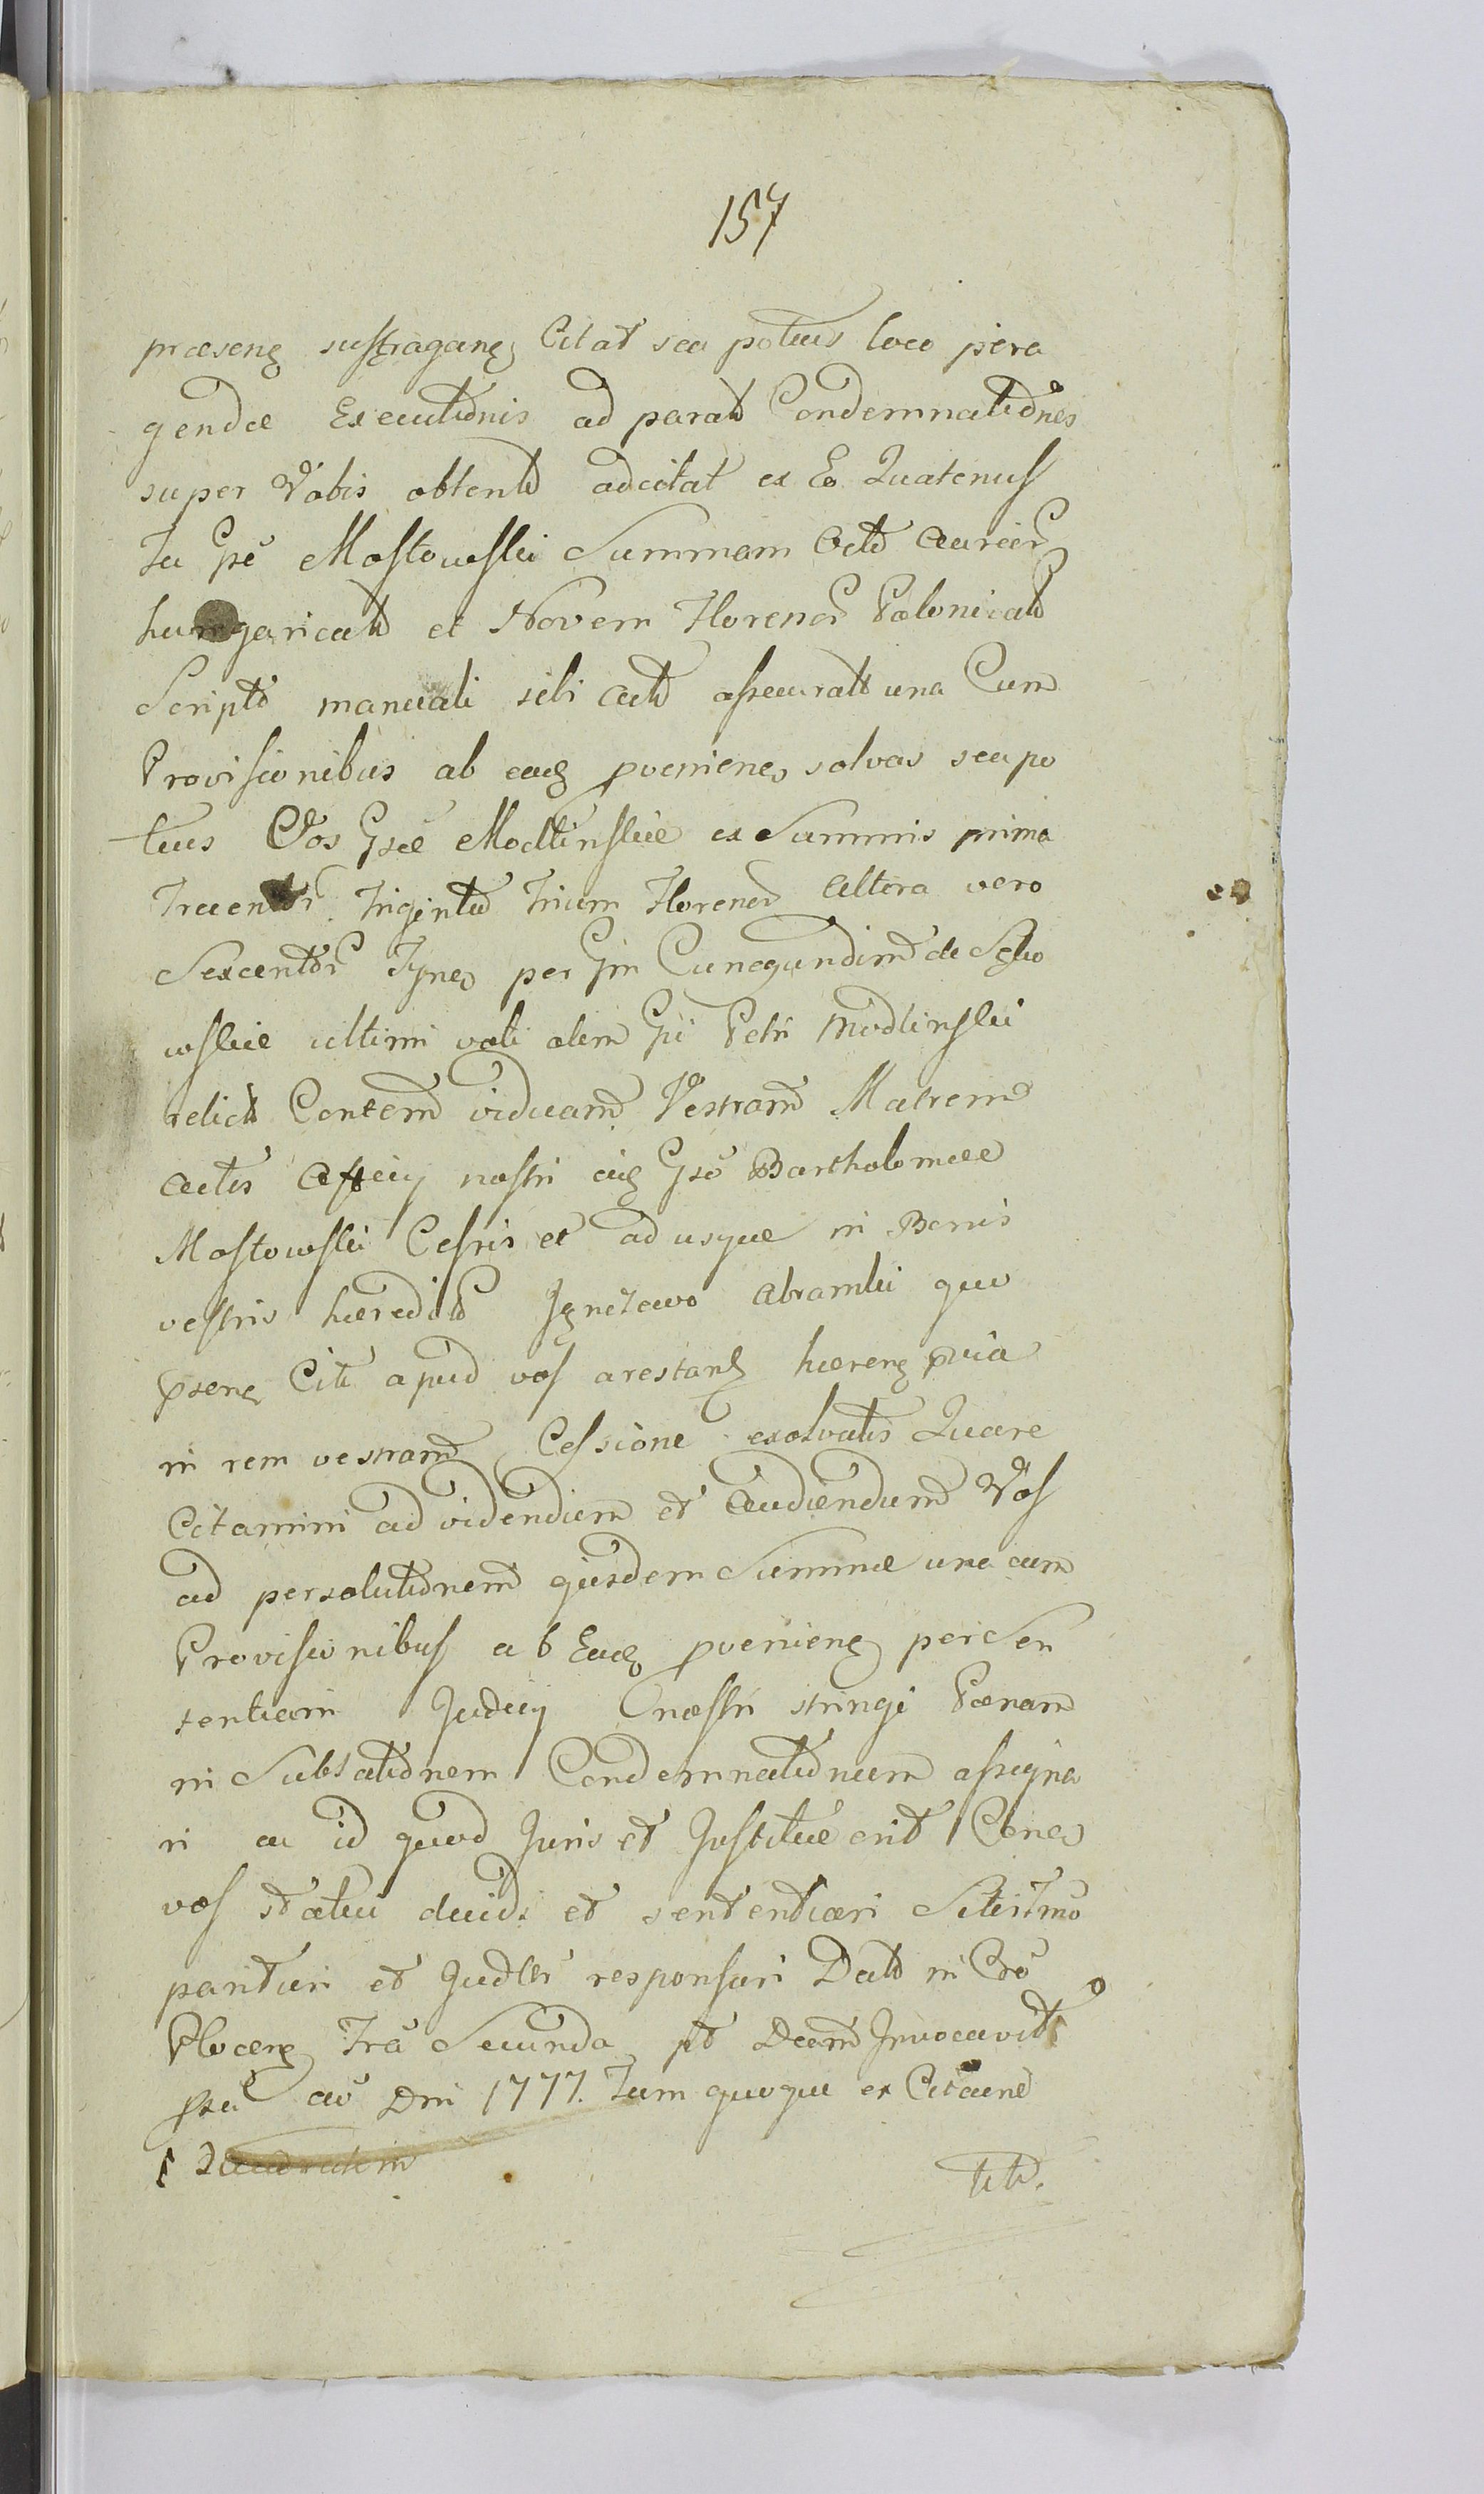 157
præsenq suffraganq Citat seu potius loco pera
gendæ Executionis ad parat Condemnationes
super Vobis obtent adcitat ex Eo Quatenus
Tu Gse Mostowski Summam Octo Aureor
hungaricat et Novem Florenor Polonicat
Scripto manuali sibi assecurat una Cum
Provisionibus ab eaq pvenienq solvas seu po
tius Vos Gsæ Modlinskie ex Summis prima
Trecentor Triginta Trium Florenor Altera vero
Sexcentor Tynq per Gm Cunegundim de
wskie ultimi voti olim Gi Petri Modlinski
relict Contem viduam Vestram Matrem
Actis Officij nostri Gso Bartholomeæ
Mostowski Cessis et ad usque in Bonis
vestris hæredit Abramki quo
psenq Citi apud vos arestanq hærenq pvia
in rem vestram Cessione exolvatis Quare
Citamini ad videndum et Audiendum Vos
ad persolutionem ejusdem Summæ una cum
Provisionibus ab Eaq pvenienq per Sen
tentiam Judicij nostri stringi Pœnam
in Sublationem Condemnationum assigna
ri ac id quod Juris et Justitiæ erit Conq
vos statui decidi et sententiari Sitis Tmo
parituri et Judlr responsuri Dat in Cro
Plocenq Fra Secunda pt Dcam Invocavit
pxa Ao Dni 1777. Tum quoque ex Citaone
Tit.